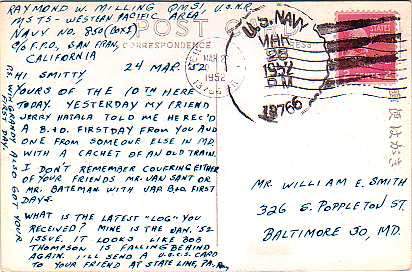 RAYMOND W. MILLING QMS1, U.S.N.R.
MSTS-WESTERN PACIFIC AREA
NAVY NO. 350 (BOX5)
C/O F.P.O., SAN FRAN,
CALIFORNIA
POST CARD
CORRESPONDENCE
24 MAR. '52
HI SMITTY,
YOURS OF THE 10TH HERE
TODAY. YESTERDAY MY FRIEND
JERRY HATALA TOLD ME HE REC'D
A B.+O. FIRSTDAY FROM YOU AND
ONE FROM SOMEONE ELSE IN MD.
WITH A CACHET OF AN OLD TRAIN.
I DON'T REMEMBER COVERING EITHER
OF YOUR FRIENDS MR. VAN SANT OR
MR. BATEMAN WITH B+O FIRST
DAYS.
WHAT IS THE LATEST "LOG" YOU
RECEIVED? MINE IS THE JAN. '52
ISSUE. IT LOOKS LIKE BOB
THOMPSON IS FALLING BEHIND
AGAIN. I'LL SEND A U.S.C.S. CARD
TO YOUR FRIEND AT STATE LINE, PA.
Ray
P.S. WIN GRANDY ALSO GOT YOUR
FIRST DAY.
MAR 2
1952
U.S. NAVY
MAR
1952
P.M
18766
MR. WILLIAM E. SMITH
326 E. POPPLETON ST.
BALTIMORE 30, MD.
便はがき